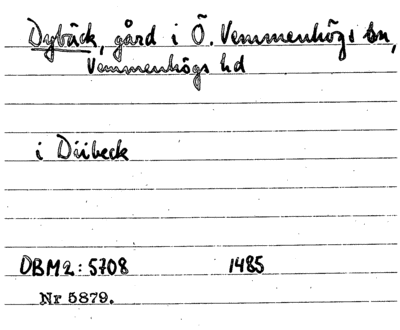 Dybäck, gård i Ö. Vemmenhögs sn,
Vemmenhögs hd
i Diibeck
DBM2:5708 1485
Nr 5879.